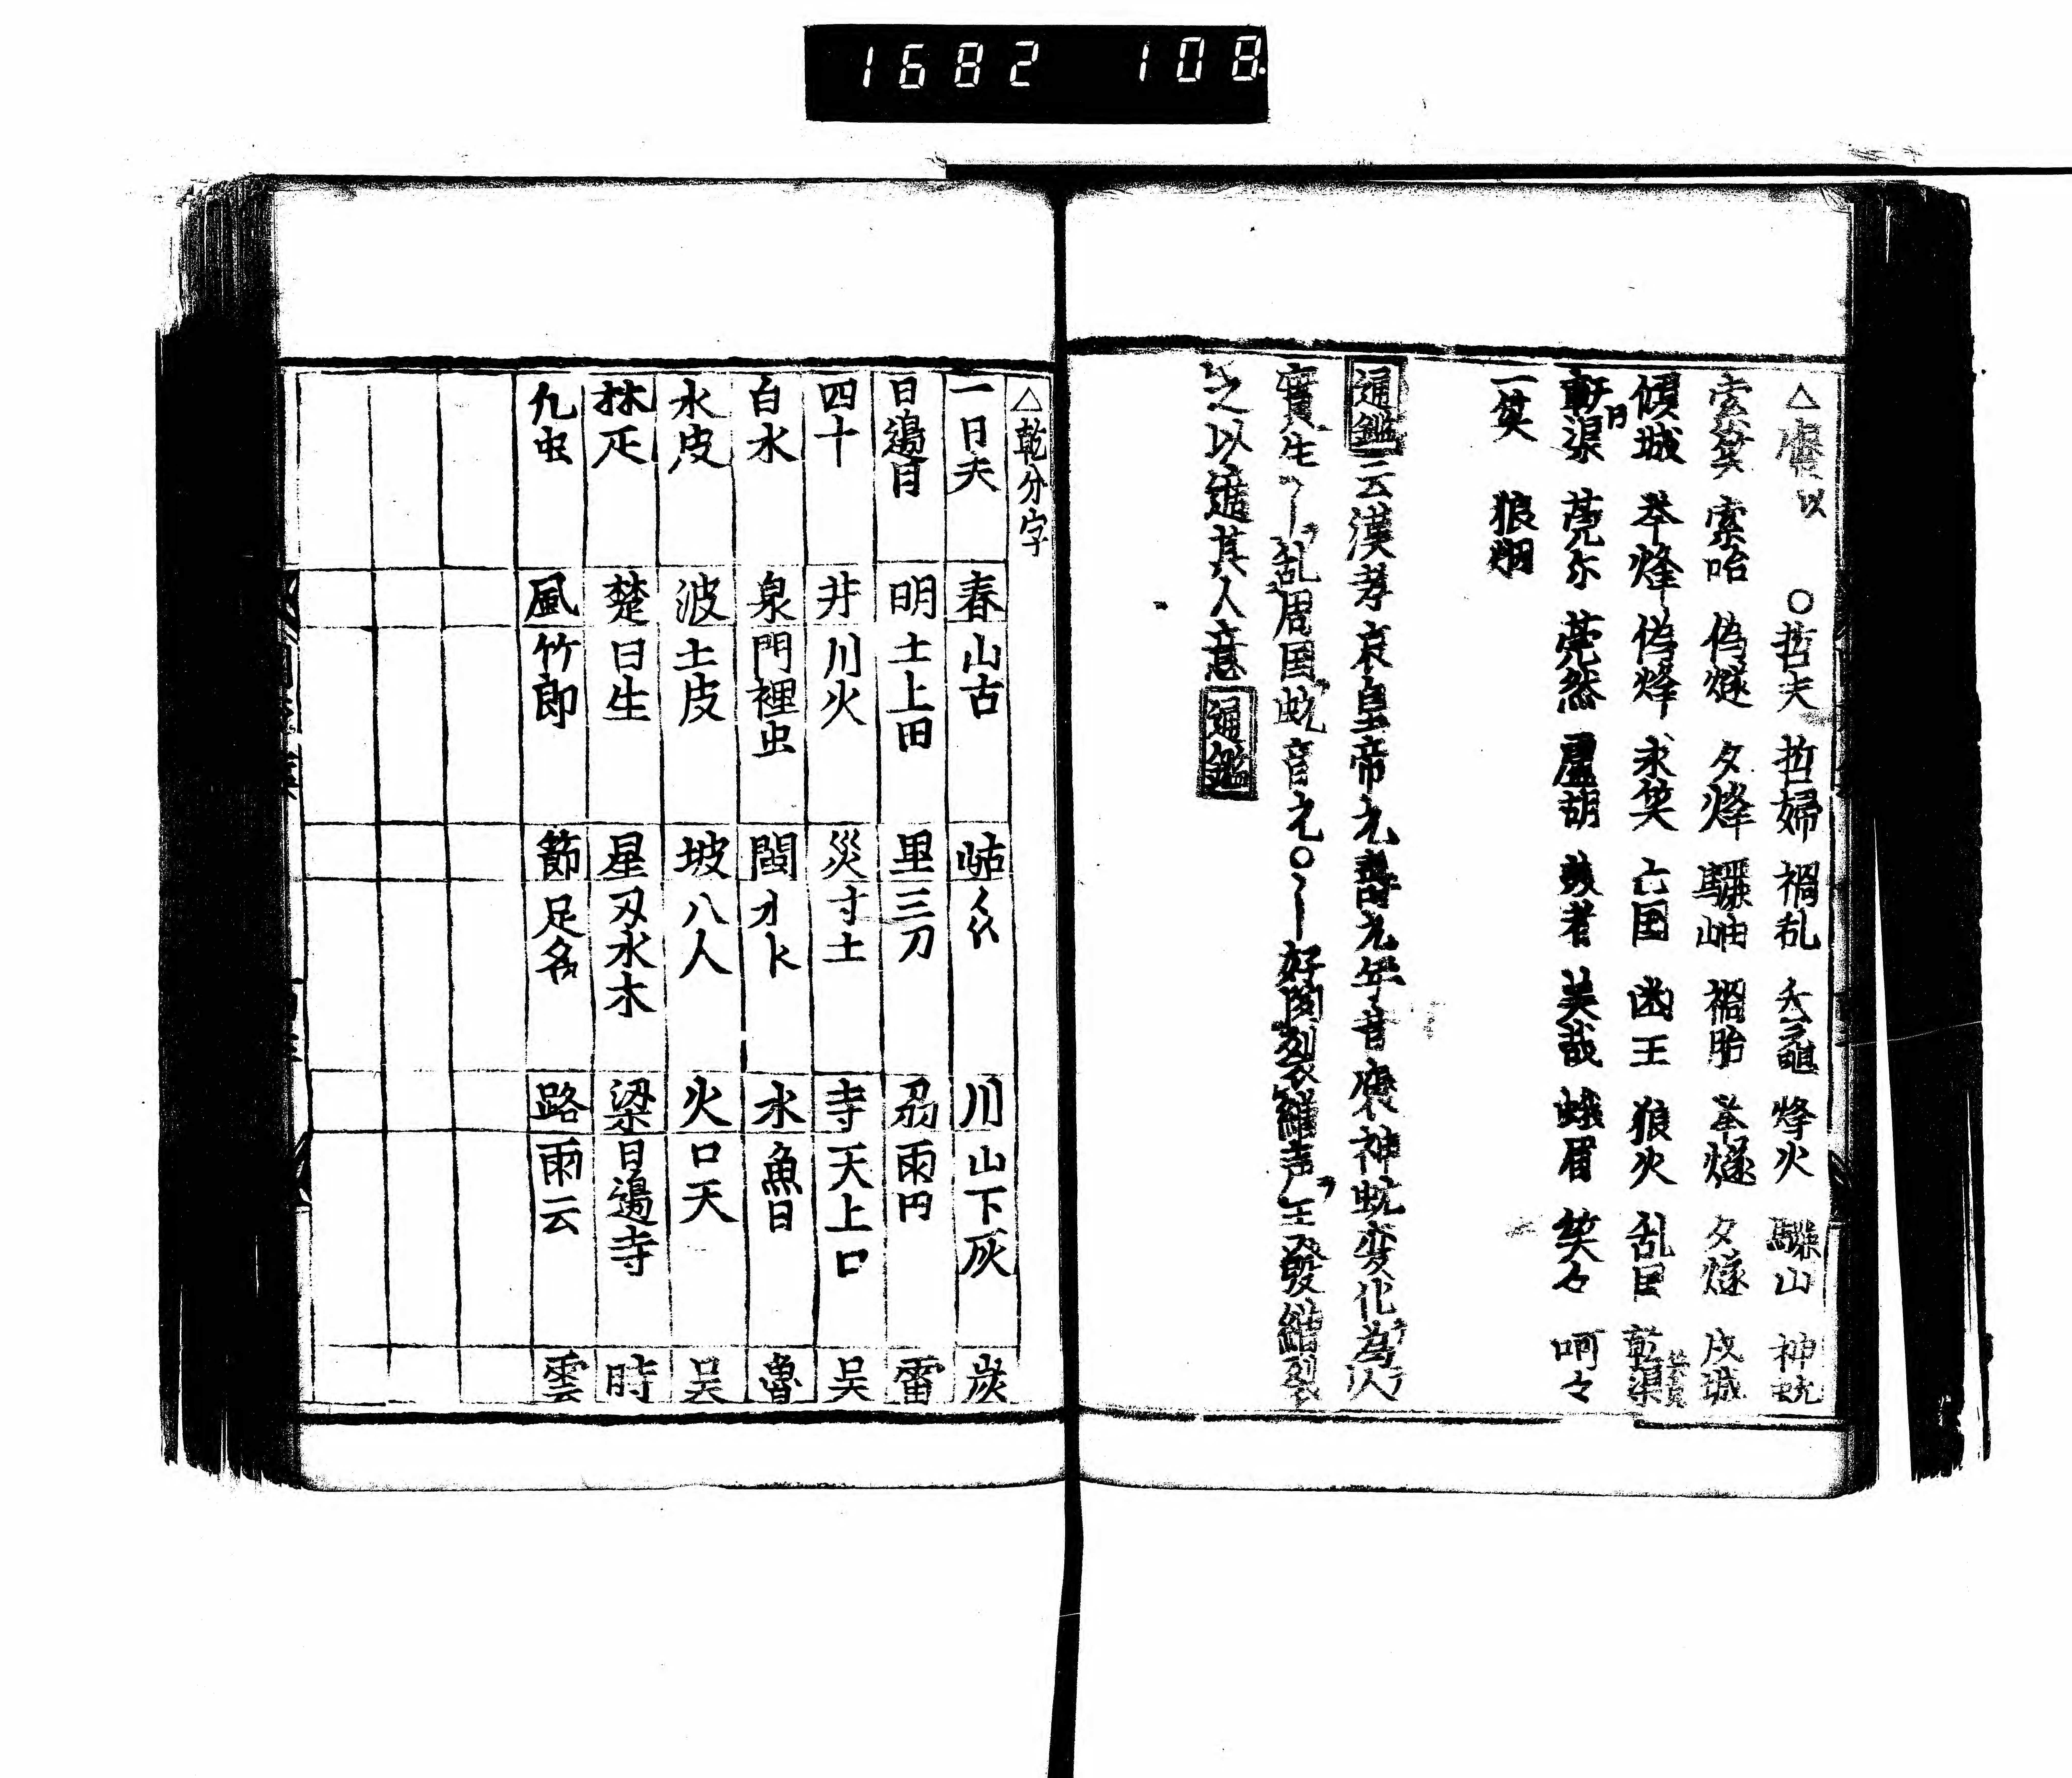 1682 108
△褒姒 ○哲夫 哲婦 禍乱 夭竜 烽火 驪山 神蚖
索笑 索咍 偽燧 夕烽 驪岫 禍胎 举燧 夕燧 戍城
傾城 举烽 偽烽 求笑 亡国 幽王 狼火 乱国 乾渠
軒渠 莞尓 莞然 盧胡 美哉 蛾眉 笑々 呵々
一笑 狼烟
通鑑云漢孝哀皇帝元寿元年昔褒神蚖变化為人
實生乱周国蚖音元○好聞裂繒声王発繒裂
之以適其人意通鑑
△乾分字
一日夫 春 山古 岵 川 山下灰 炭
日邊月 明 土上田 里 三刀 刕 雨田 雷
四十 井 川火 災 寸土 寺 天上口 吴
白水 泉 門裡虫 閩 水 魚日 魯
水皮 波 土皮 坡 八人 火 口天 吴
林疋 楚 日生 星 刅水木 梁 日邊寺 時
几虫 風 竹即 節 足各 路 雨云 雲